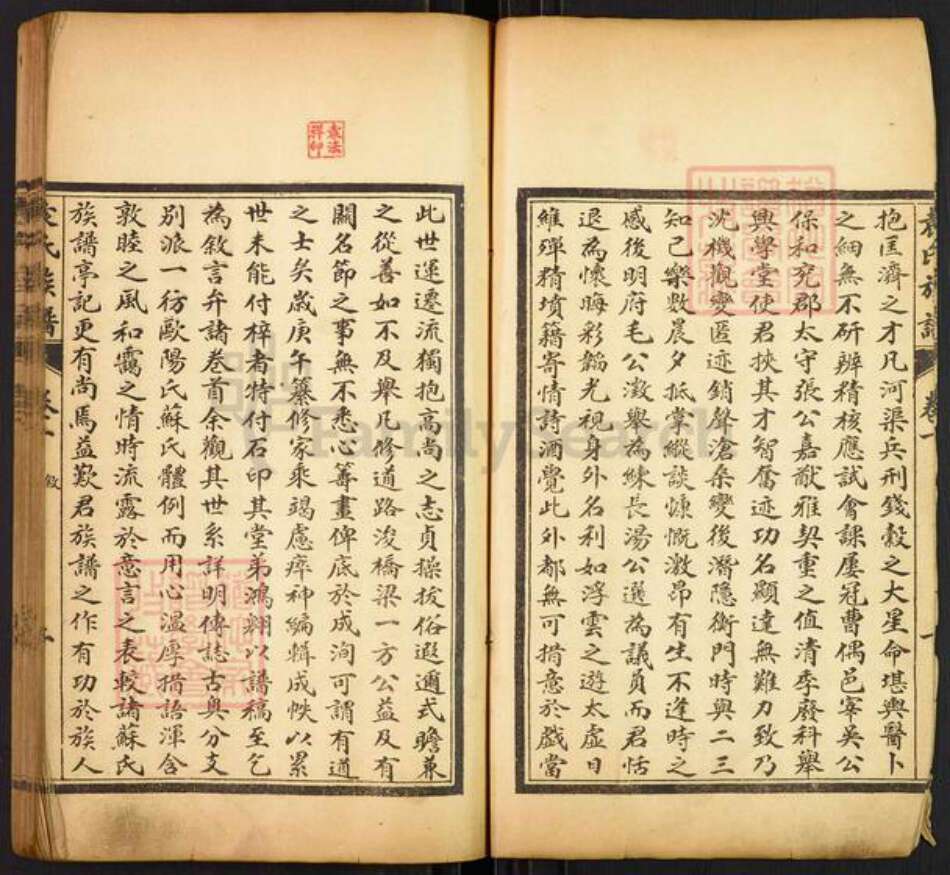 袁氏族譜
卷一
抱匡濟之才凡河渠兵刑錢穀之大星命堪輿醫卜
之細無不研辦精核應試會課屢冠曹偶邑宰英公
保和兗郡太守張公嘉猷雅契重之值清季廢科舉
興學堂使君挾其才智奮迹功名顯達無難力致乃
沈機觀變匿迹銷聲滄桑變後潛隱衡門時與二三
知己樂數晨夕抵掌縱談慷慨激昂有生不逢時之
感後明府毛公澂舉為練長湯公選為議員而君恬
退為懷晦彩韜光視身外名利如浮雲之遊太虛日
維殫精墳籍寄情詩酒覺此外都無可措意於戲當
此世運遷流獨抱高尚之志貞操拔俗遐邇式瞻兼
之從善如不及舉凡修道路浚橋梁一方公益及有
關名節之事無不悉心籌畫俾底於成洵可謂有道
之士矣歲庚午纂修家乘竭慮瘁神編輯成帙以累
世未能付梓者特付石印其堂弟鴻翱以譜稿至乞
為敘言弁諸卷首余觀其世系詳明傳誌古奧分支
別派一彷歐陽氏蘇氏體例而用心溫厚措語渾含
敦睦之風和靄之情時流露於意言之表較諸蘇氏
族譜亭記更有尚焉益歎君族譜之作有功於族人
氏族譜
卷一
敘
袁法祥印
FamilySearch